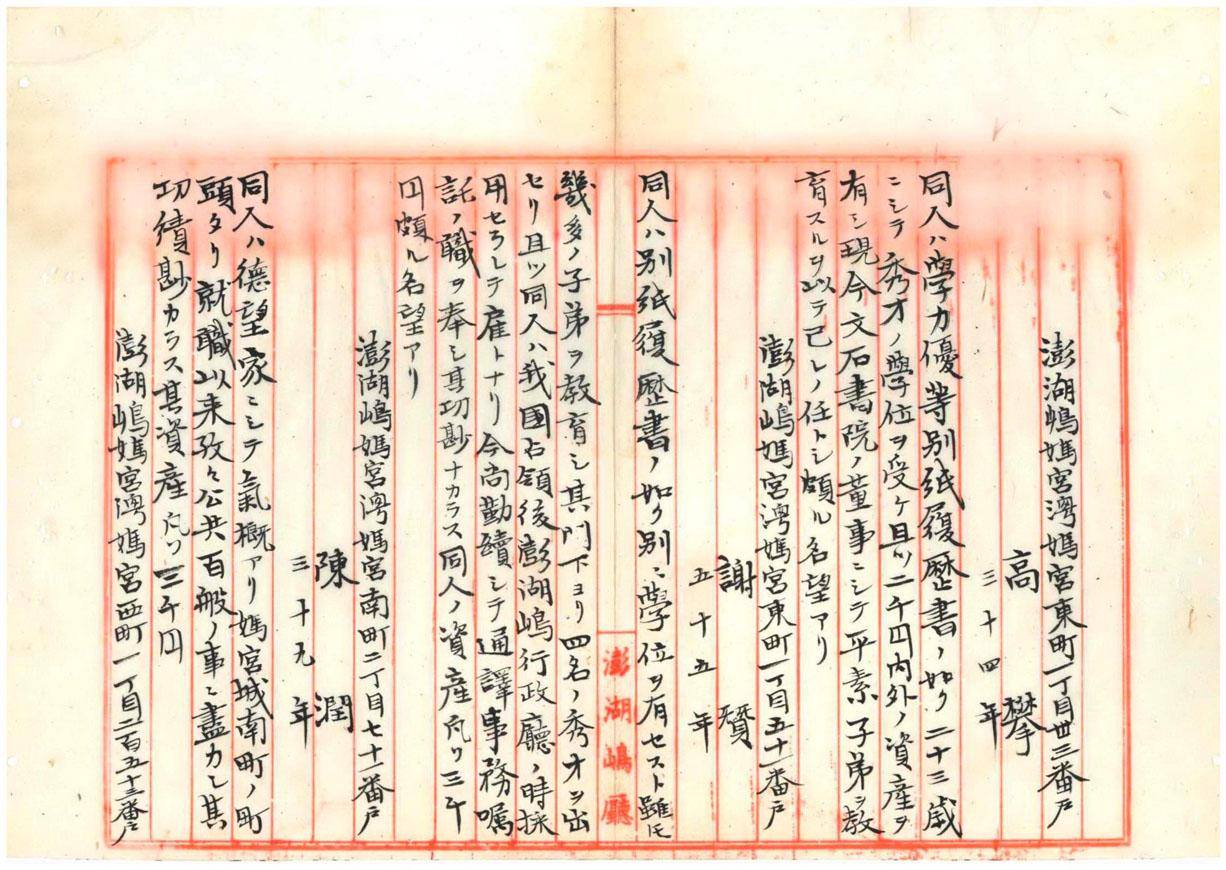 澎湖嶋媽宮湾媽宮東町一丁目卅三番戸
高攀
三十四年
同人ハ學力優等別紙履歴書ノ如ク二十三歳
ニシテ秀才ノ學位ヲ受ケ且ツ二千円内外ノ資産ヲ
有シ現今文石書院ノ董事ニシテ平素子弟ヲ教
育スルヲ以テ己レノ任トシ頗ル名望アリ
澎湖嶋媽宮湾媽宮東町一丁目五十一番戸
謝贊
五十五年
同人ハ別紙履歴書ノ如ク別ニ學位ヲ有セスト雖モ
澎湖嶋廳
幾多ノ子弟ヲ教育シ其門下ヨリ四名ノ秀才ヲ出
セリ且ツ同人ハ我國占領後澎湖嶋行政廳ノ時採
用セラレテ雇トナリ今尚勤續シテ通譯事務嘱
託ノ職ヲ奉シ其功尠ナカラス同人ノ資産凡ソ三千
円頗ル名望アリ
澎湖嶋媽宮湾媽宮南町二丁目七十一番戸
陳潤
三十九年
同人ハ德望家ニシテ氣概アリ媽宮城南町ノ町
頭タリ就職以来孜々公共百般ノ事ニ盡力シ其
功績尠カラス其資産凡ソ三千円
澎湖嶋媽宮湾媽宮西町一丁目二百五十三番戸